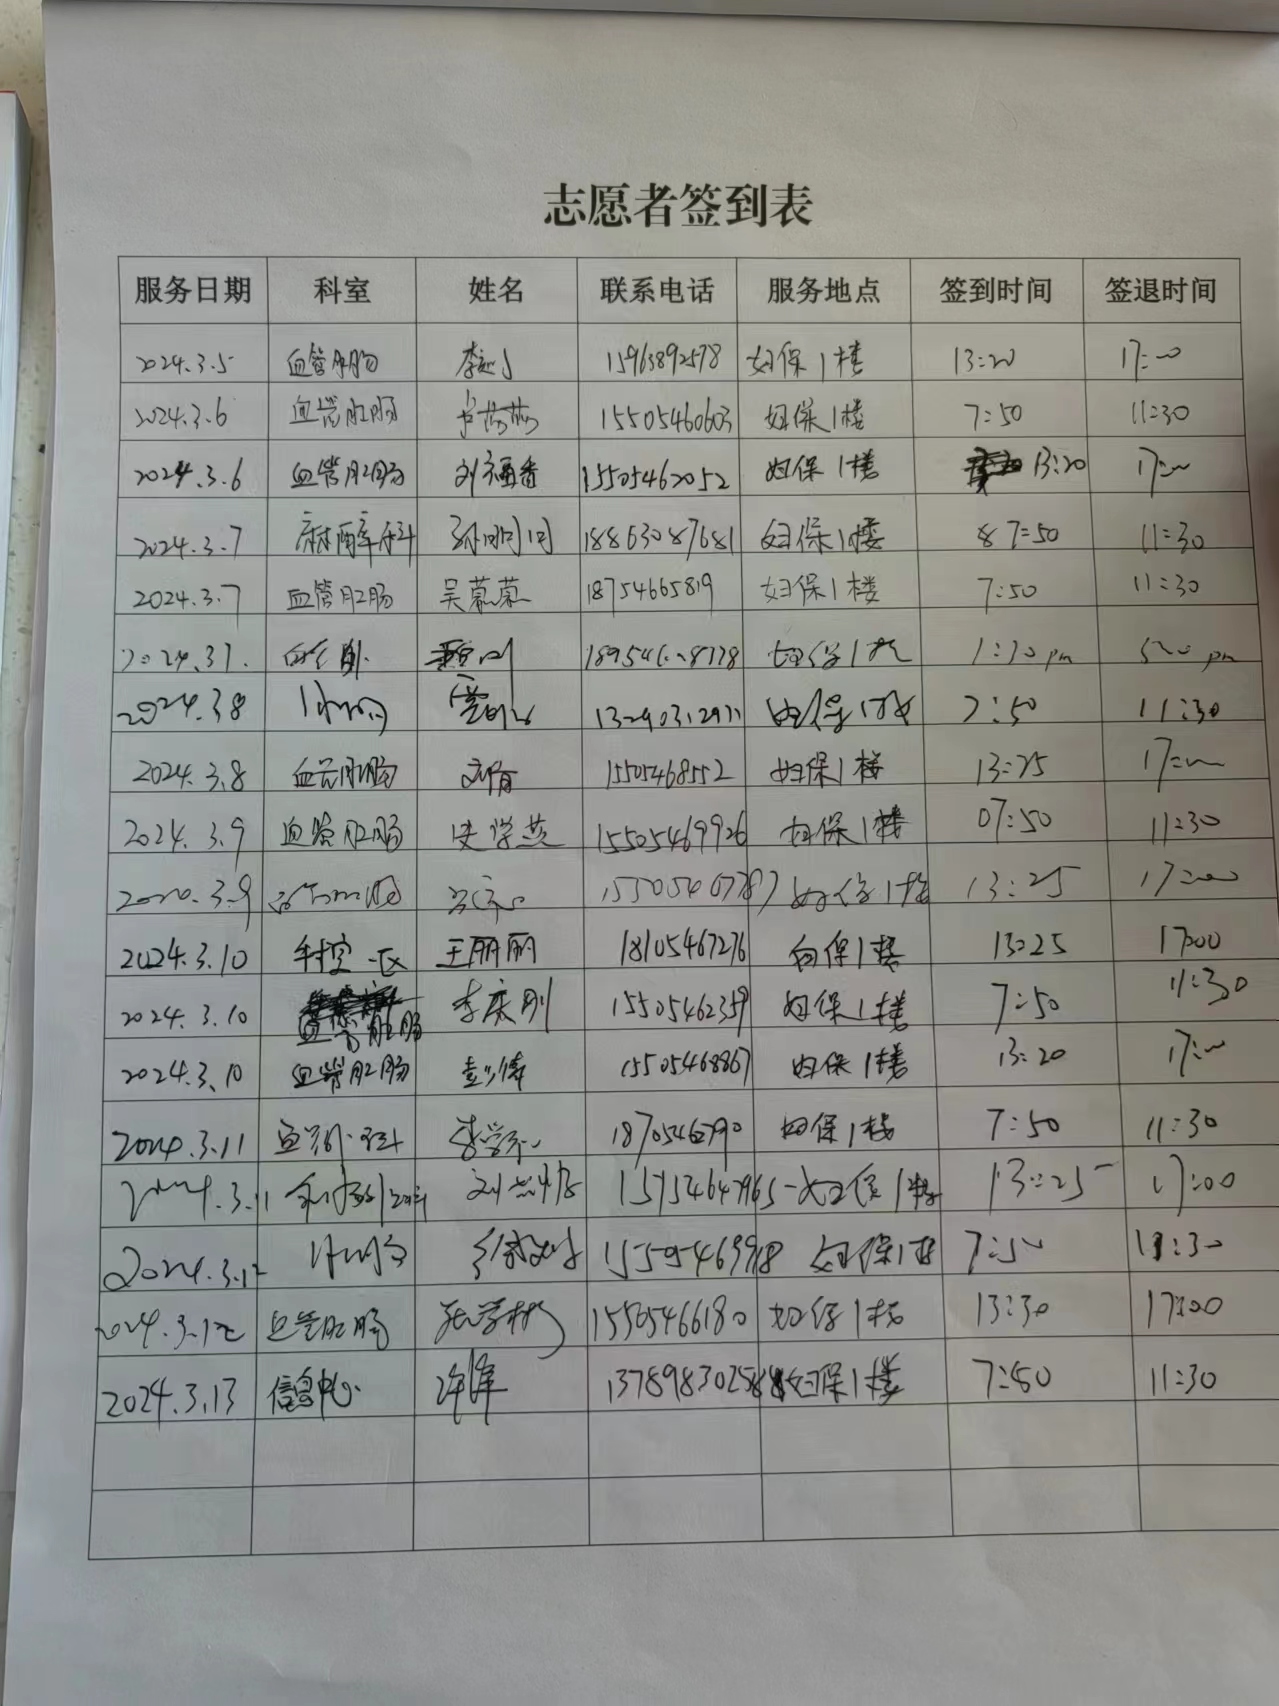 志愿者签到表
服务日期 科室 姓名 联系电话 服务地点 签到时间 签退时间
2024.3.5 血管肛肠 15963892578 妇保1楼 13:20 17:00
2024.3.6 血管肛肠 15505460603 妇保1楼 7:50 11:30
2024.3.6 血管肛肠 刘福香 15505462052 妇保1楼 13:20 17:00
2024.3.7 麻醉科 孙明月 18863087681 妇保1楼 7:50 11:30
2024.3.7 血管肛肠 吴慕慕 18754665819 妇保1楼 7:50 11:30
2024.3.7. 妇保1楼 1:30 pm 5:00 pm
2024.3.8 妇保1楼 7:50 11:30
2024.3.8 血管肛肠 15505468552 妇保1楼 13:25 17:00
2024.3.9 血管肛肠 史学燕 15505469926 妇保1楼 07:50 11:30
2024.3.9 15505467787 妇保1楼 13:25 17:00
2024.3.10 手控一区 王丽丽 18105467276 妇保1楼 13:25 17:00
2024.3.10 血管肛肠 李庆刚 15505462359 妇保1楼 7:50 11:30
2024.3.10 血管肛肠 彭伟 15505468867 妇保1楼 13:20 17:00
2024.3.11 妇保1楼 7:50 11:30
2024.3.11 妇保1楼 13:25 17:00
2024.3.12 妇保1楼 7:50 11:30
2024.3.12 血管肛肠 张学彬 15505466180 妇保1楼 13:30 17:00
2024.3.13 信息中心 许峰 妇保1楼 7:50 11:30